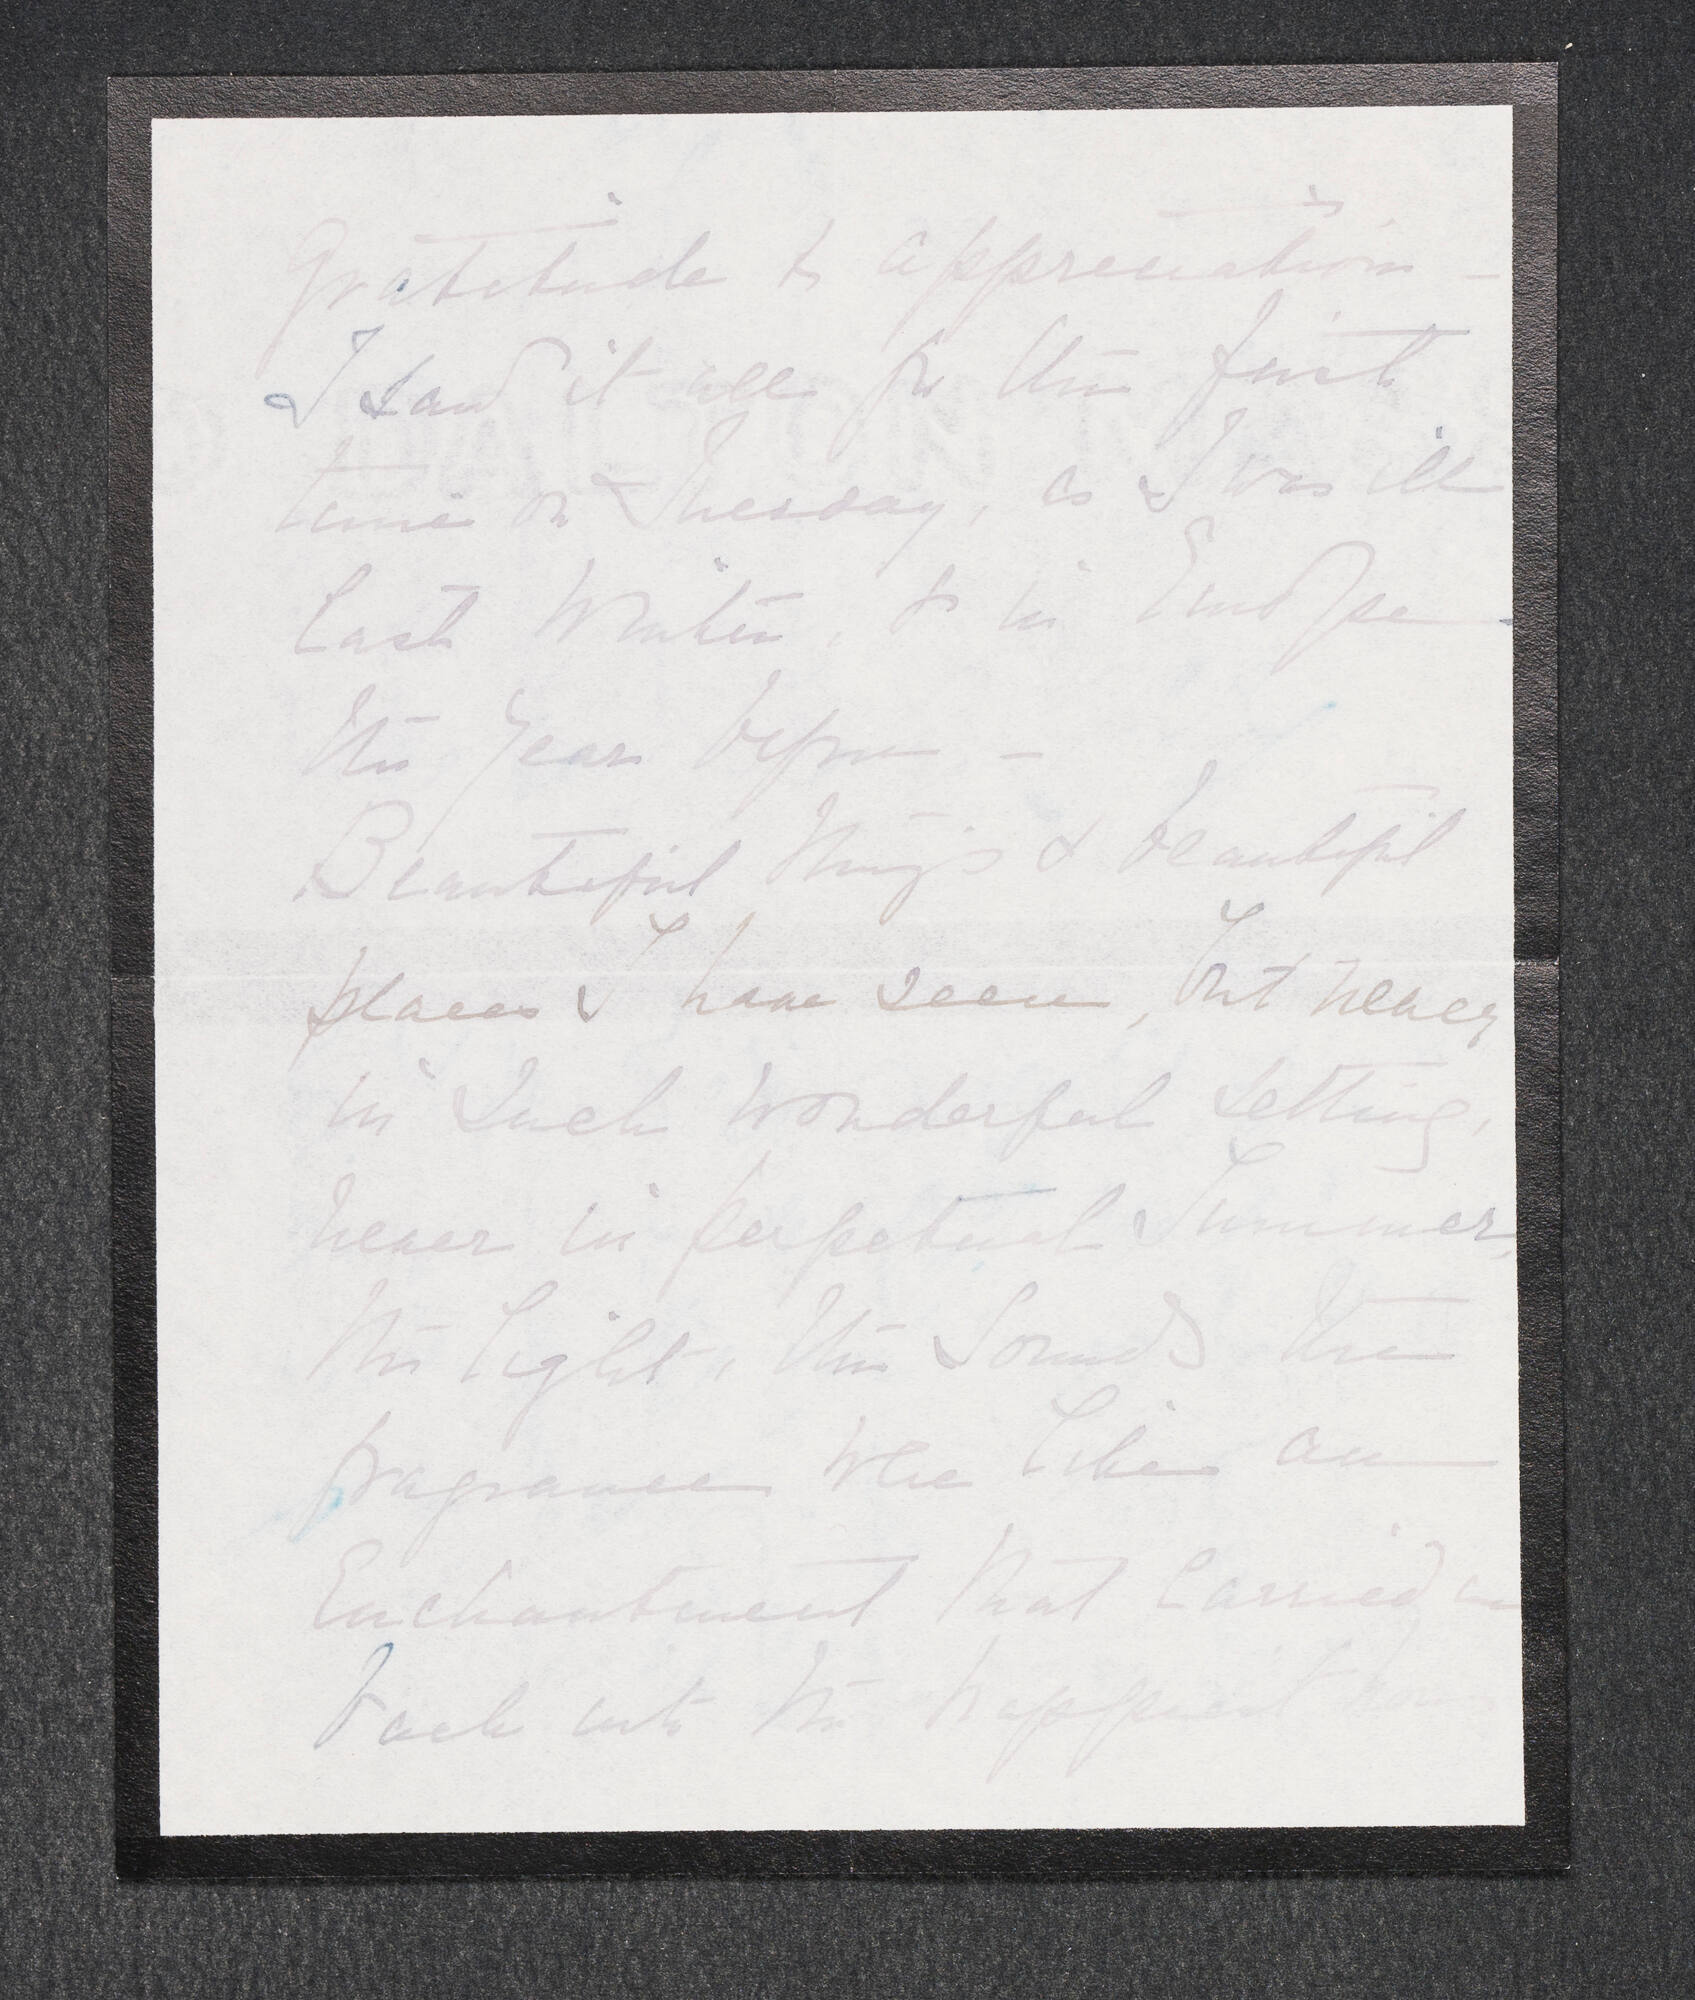 gratitude & appreciation –
I saw it all for the first
time on Tuesday, as I was ill
last Winter, & in Europe
the year before –
Beautiful things & beautiful
places I have seen, but never
in such wonderful setting,
never in perpetual Summer,
the light, the Sounds the
fragrance were like an
Enchantment that carried me
back into the happiest